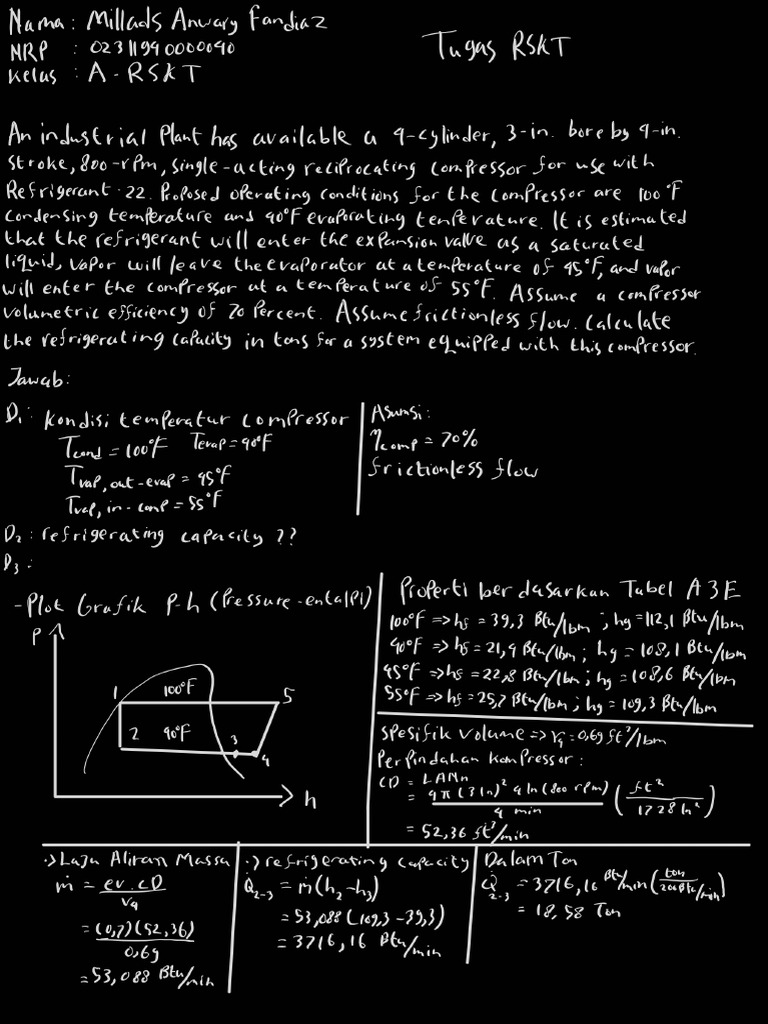 Nama : Millads Anwary Fandiaz
NRP : 02311940000040
Kelas : A - RSKT
Tugas RSKT
An industrial Plant has available a 4-cylinder, 3-in. bore by 4-in.
stroke, 800-rpm, single-acting reciprocating compressor for use with
Refrigerant-22. Proposed operating conditions for the compressor are 100°F
condensing temperature and 40°F evaporating temperature. It is estimated
that the refrigerant will enter the expansion valve as a saturated
liquid, vapor will leave the evaporator at a temperature of 45°F, and vapor
will enter the compressor at a temperature of 55°F. Assume a compressor
volumetric efficiency of 70 Percent. Assume frictionless flow. Calculate
the refrigerating capacity in tons for a system equipped with this compressor.
Jawab:
D1: Kondisi temperatur compressor
Tcond = 100°F Tevap = 40°F
Tvap, out-evap = 45°F
Tvap, in-comp = 55°F
Asumsi:
ηcomp = 70%
frictionless flow
D2: refrigerating capacity ??
D3:
- Plot Grafik P-h (Pressure-entalpi)
P
1 100°F 5
2 40°F 3 4
h
Properti berdasarkan Tabel A3E
100°F => hf = 39,3 Btu/lbm ; hg = 112,1 Btu/lbm
40°F => hf = 21,4 Btu/lbm ; hg = 108,1 Btu/lbm
45°F => hf = 22,8 Btu/lbm ; hg = 108,6 Btu/lbm
55°F => hf = 25,7 Btu/lbm ; hg = 109,3 Btu/lbm
Spesifik Volume => v4 = 0,69 ft³/lbm
Perpindahan kompressor :
CD = LANn
= 4π (3 in)² 4 in (800 rpm) / 4 min (ft³ / 1728 in³)
= 52,36 ft³/min
·> Laju Aliran Massa
ṁ = ev . CD / v4
= (0,7)(52,36) / 0,69
= 53,088 Btu/min
·> refrigerating capacity
Q̇2-3 = ṁ (h2 - h3)
= 53,088 (109,3 - 39,3)
= 3716,16 Btu/min
Dalam Ton
Q̇2-3 = 3716,16 Btu/min (ton / 200 Btu/min)
= 18,58 Ton